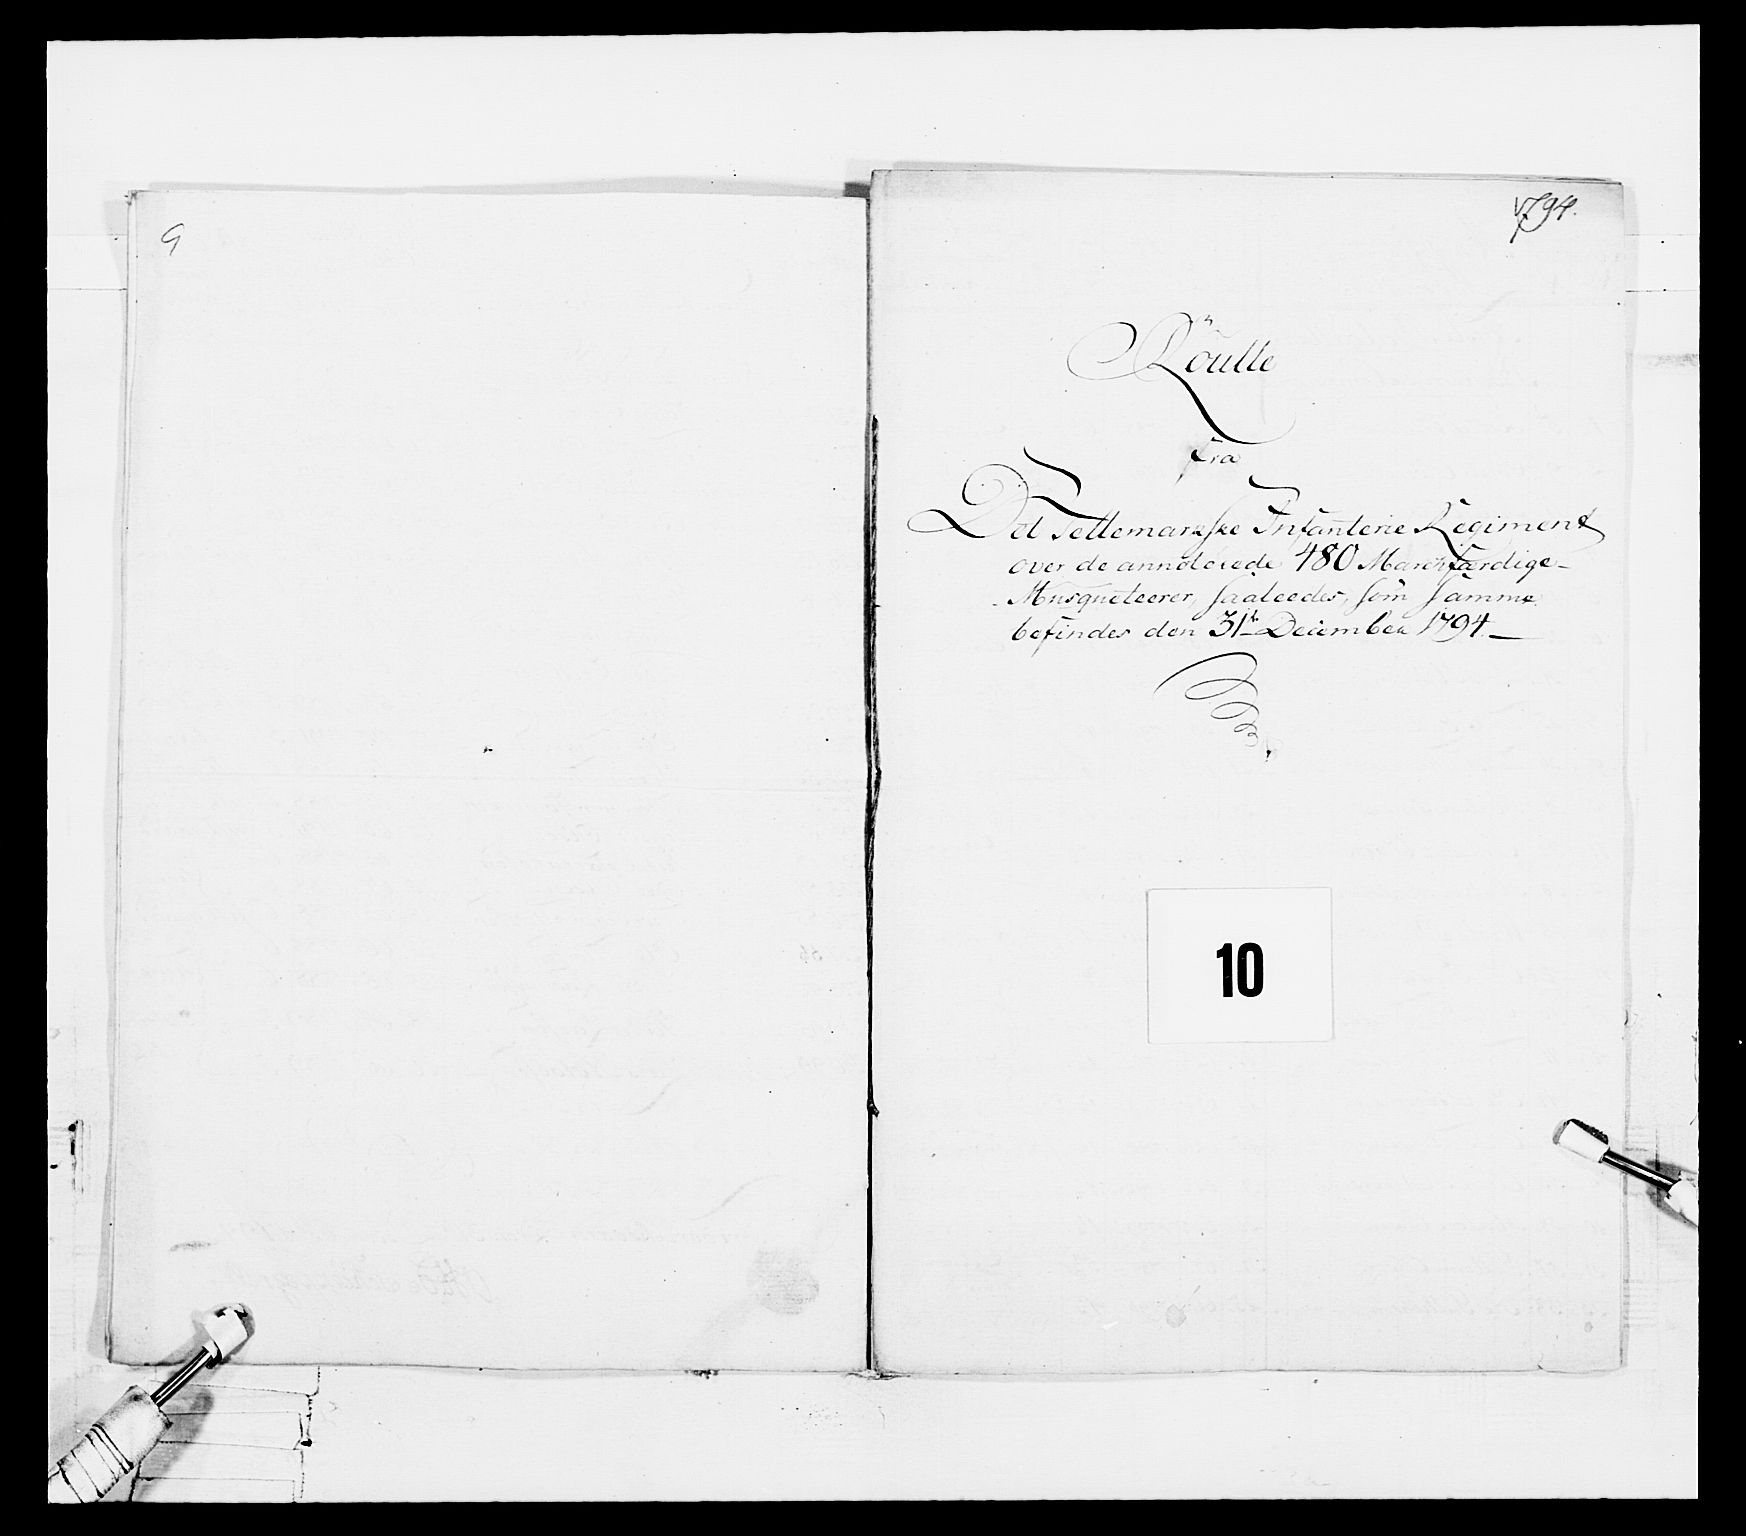 9
1794.
Roulle
fra
Det Tellemarkske Infanterie Regiment
over de annoterede 480 Marchfærdige
Musqueteerer, saaleedes, som samme
befindes den 31te December 1794.
10